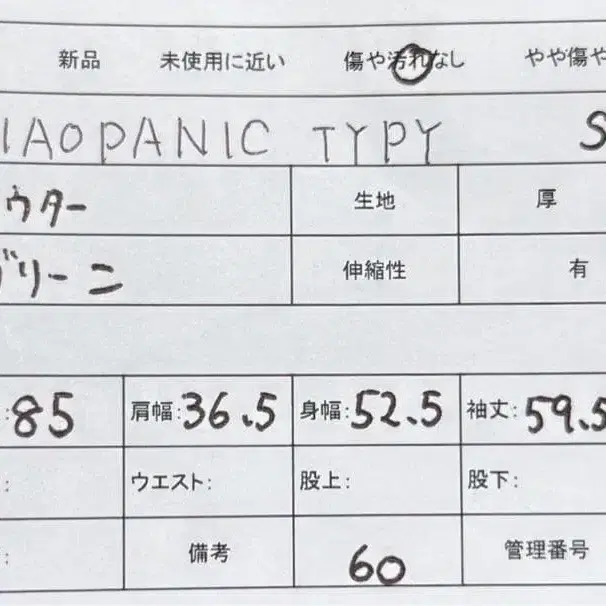 新品 未使用に近い 傷や汚れなし やや傷や
IAOPANIC TYPY S
ウター 生地 厚
ブリーニ 伸縮性 有
:85 肩幅:36.5 身幅:52.5 袖丈:59.5
: ウエスト: 股上: 股下:
: 備考 60 管理番号